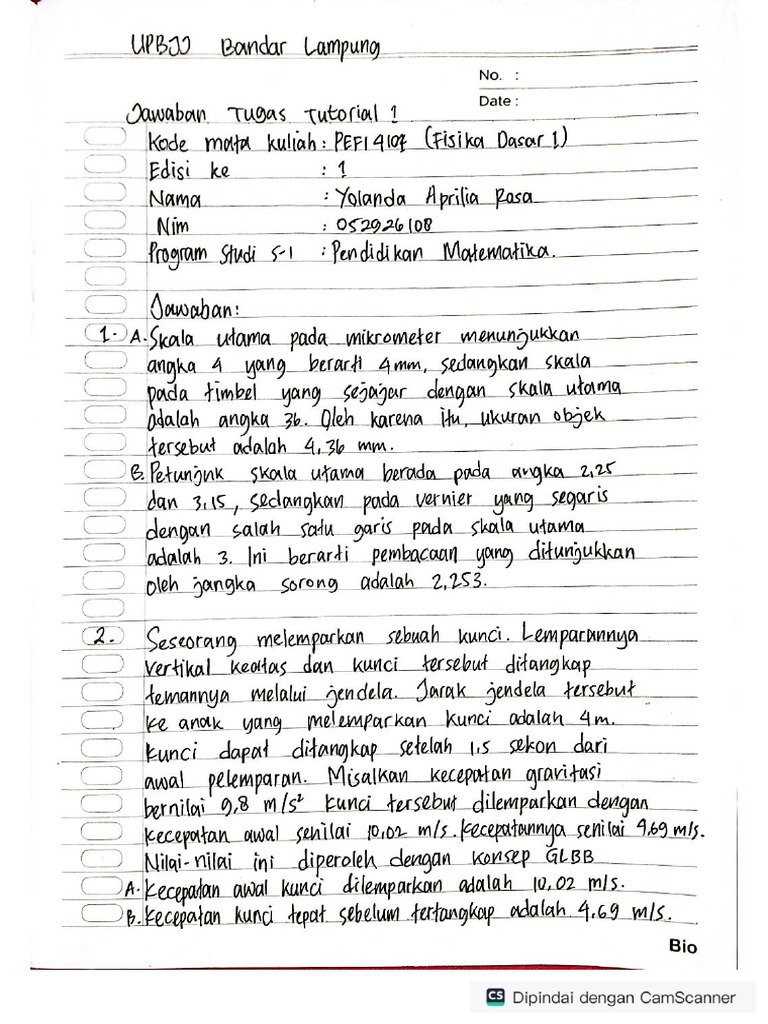 UPBJJ Bandar Lampung
No. :
Date :
Jawaban Tugas Tutorial 1
Kode mata kuliah : PEFI4107 (Fisika Dasar 1)
Edisi ke : 1
Nama : Yolanda Aprilia Rosa
Nim : 052926108
Program Studi S-1 : Pendidikan Matematika.
Jawaban:
1. A. Skala utama pada mikrometer menunjukkan
angka 4 yang berarti 4mm, sedangkan skala
pada timbel yang sejajar dengan skala utama
adalah angka 36. Oleh karena itu, ukuran objek
tersebut adalah 4,36 mm.
B. Petunjuk skala utama berada pada angka 2,25
dan 3,15, sedangkan pada vernier yang segaris
dengan salah satu garis pada skala utama
adalah 3. Ini berarti pembacaan yang ditunjukkan
oleh jangka sorong adalah 2,253.
2. Seseorang melemparkan sebuah kunci. Lemparannya
vertikal keatas dan kunci tersebut ditangkap
temannya melalui jendela. Jarak jendela tersebut
ke anak yang melemparkan kunci adalah 4m.
Kunci dapat ditangkap setelah 1,5 sekon dari
awal pelemparan. Misalkan kecepatan gravitasi
bernilai 9,8 m/s² kunci tersebut dilemparkan dengan
kecepatan awal senilai 10,02 m/s. kecepatannya senilai 4,69 m/s.
Nilai-nilai ini diperoleh dengan konsep GLBB
A. Kecepatan awal kunci dilemparkan adalah 10,02 m/s.
B. Kecepatan kunci tepat sebelum tertangkap adalah 4.69 m/s.
Bio
CS Dipindai dengan CamScanner